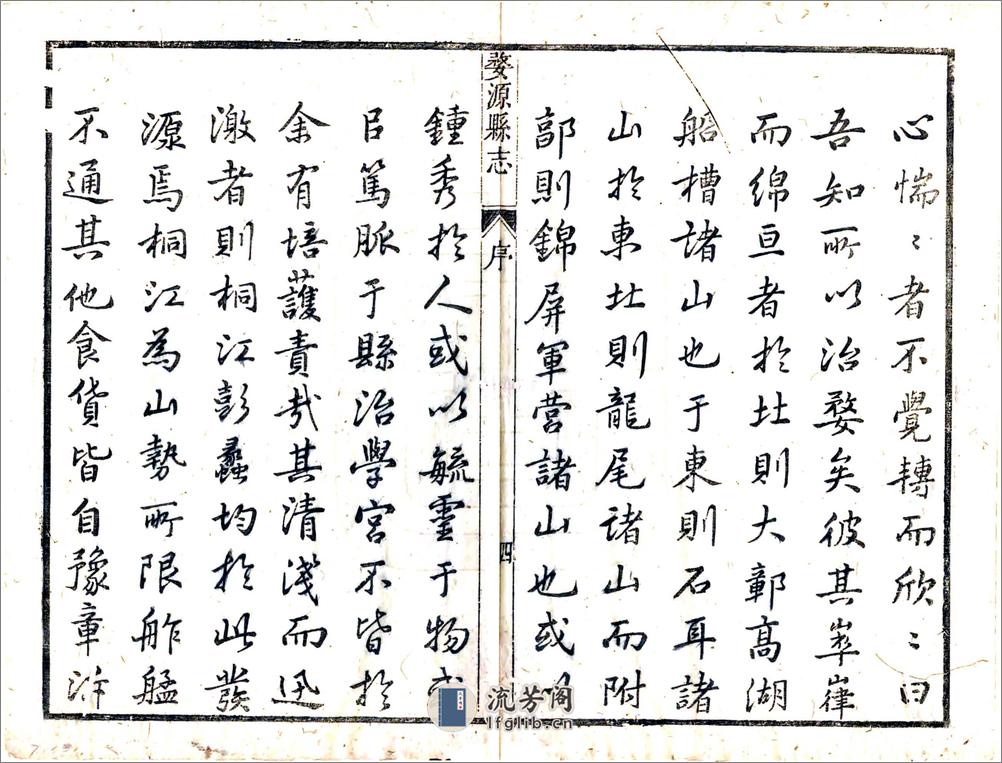 心惴〻者不覺轉而欣〻曰
吾知所以治婺矣彼其崒嵂
而綿亘者於北則大鄣高湖
船槽諸山也于東則石耳諸
山於東北則龍尾諸山而附
郭則錦屏軍營諸山也或
婺源縣志
序
四
鍾秀於人或以毓靈于物或
㠯篤脈于縣治學宮不皆於
余有培護責哉其清淺而迅
激者則桐江彭蠡均於此發
源焉桐江為山勢所限舴艋
不通其他食貨皆自豫章泝
流芳阁
lfglib.cn